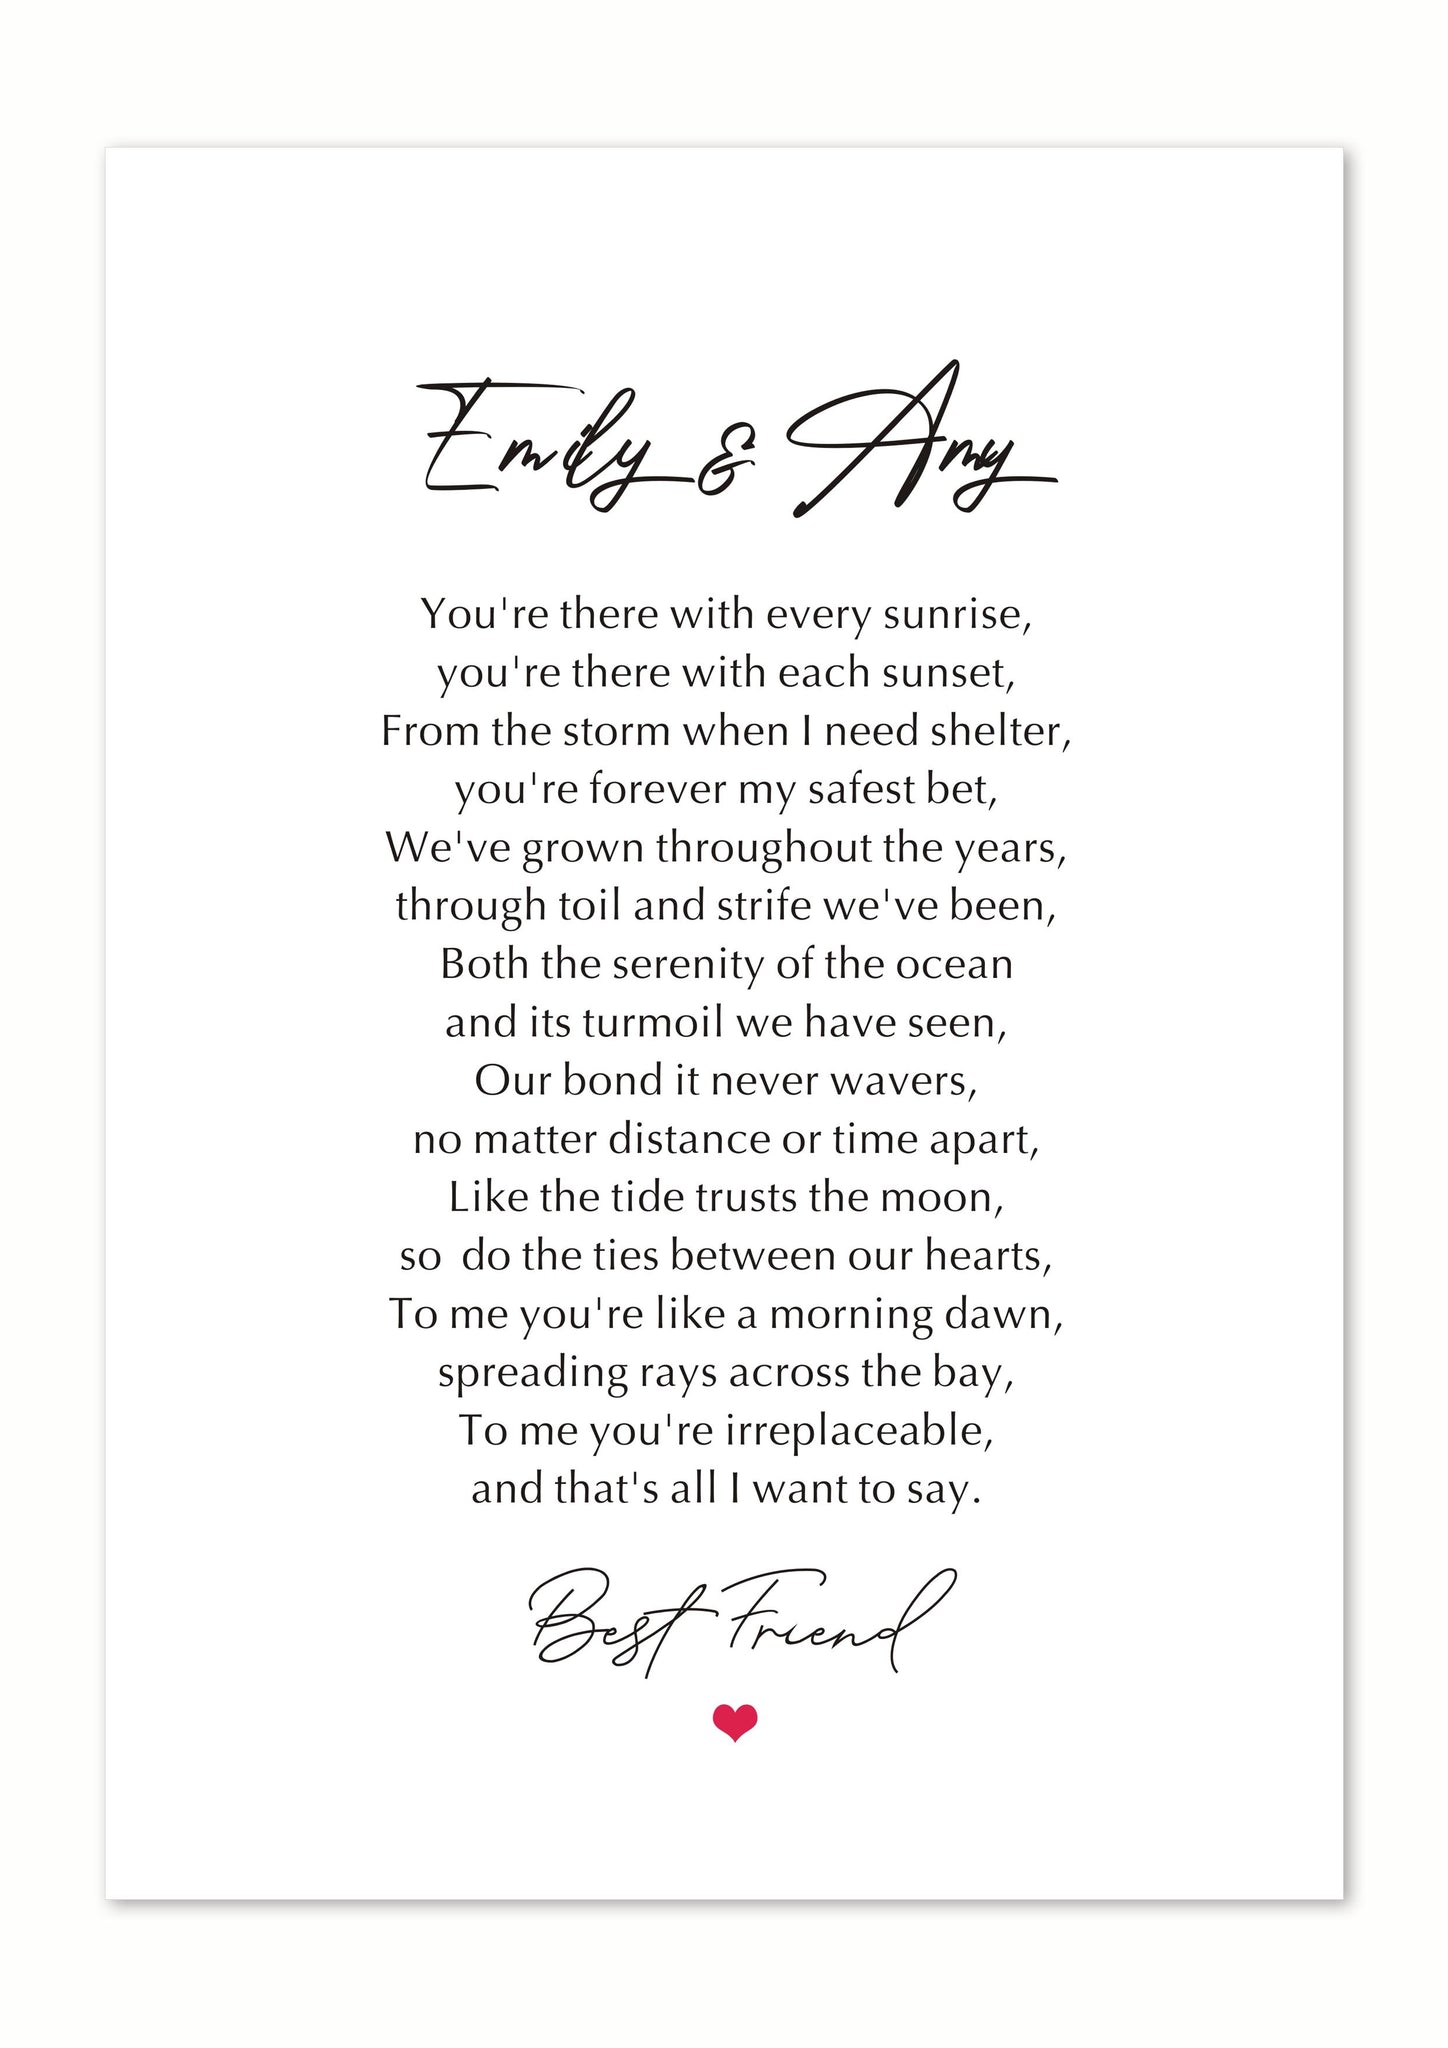 Emily & Amy
You're there with every sunrise,
you're there with each sunset,
From the storm when I need shelter,
you're forever my safest bet,
We've grown throughout the years,
through toil and strife we've been,
Both the serenity of the ocean
and its turmoil we have seen,
Our bond it never wavers,
no matter distance or time apart,
Like the tide trusts the moon,
so  do the ties between our hearts,
To me you're like a morning dawn,
spreading rays across the bay,
To me you're irreplaceable,
and that's all I want to say.
Best Friend